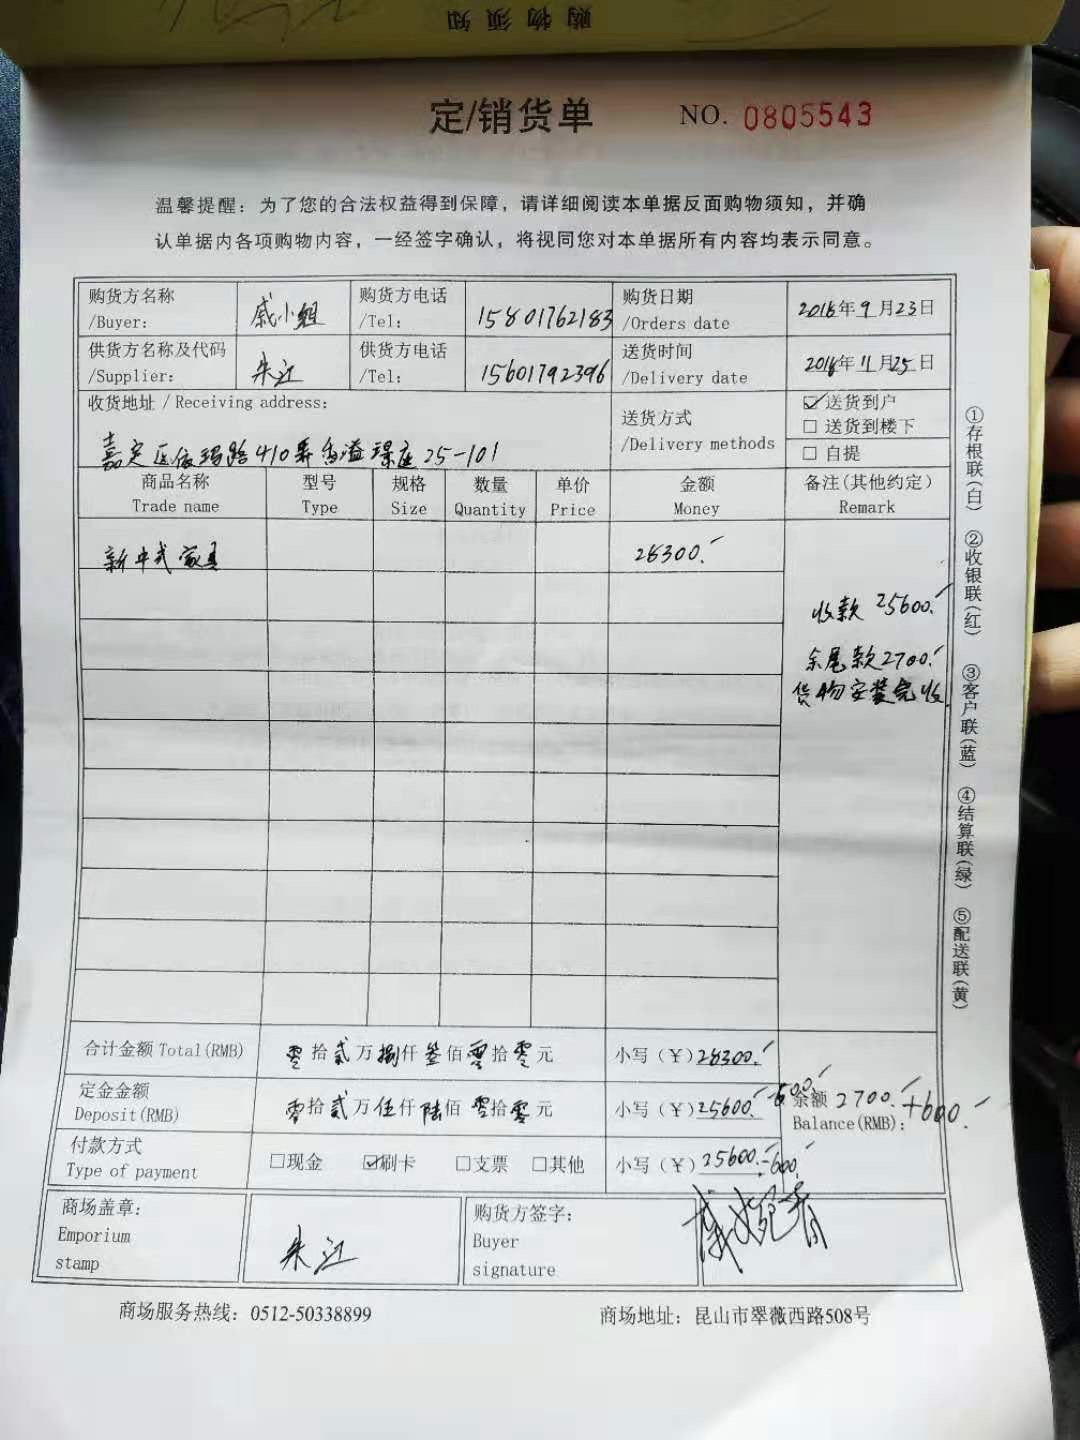 购物须知
定/销货单 NO. 0805543
温馨提醒：为了您的合法权益得到保障，请详细阅读本单据反面购物须知，并确
认单据内各项购物内容，一经签字确认，将视同您对本单据所有内容均表示同意。
购货方名称 /Buyer: 戚小姐 购货方电话 /Tel: 15801762183 购货日期 /Orders date 2018年9月23日
供货方名称及代码 /Supplier: 朱江 供货方电话 /Tel: 15601792396 送货时间 /Delivery date 2018年11月25日
收货地址 / Receiving address: 送货方式 /Delivery methods ☑送货到户
□ 送货到楼下
□ 自提
嘉定区依玛路410弄香溢璟庭25-101
商品名称 Trade name 型号 Type 规格 Size 数量 Quantity 单价 Price 金额 Money 备注(其他约定) Remark
新中式家具 28300.-
收款 25600.-
余尾款2700.-
货物安装完收
合计金额 Total(RMB) 零拾贰万捌仟叁佰零拾零元 小写（¥）28300.-
定金金额 Deposit(RMB) 零拾贰万伍仟陆佰零拾零元 小写（¥）25600.-600.- 余额 Balance(RMB): 2700.-+600.-
付款方式 Type of payment □现金 ☑刷卡 □支票 □其他 小写（¥）25600.-600.
商场盖章: Emporium stamp 朱江 购货方签字: Buyer signature
商场服务热线：0512-50338899 商场地址：昆山市翠薇西路508号
①存根联(白) ②收银联(红) ③客户联(蓝) ④结算联(绿) ⑤配送联(黄)